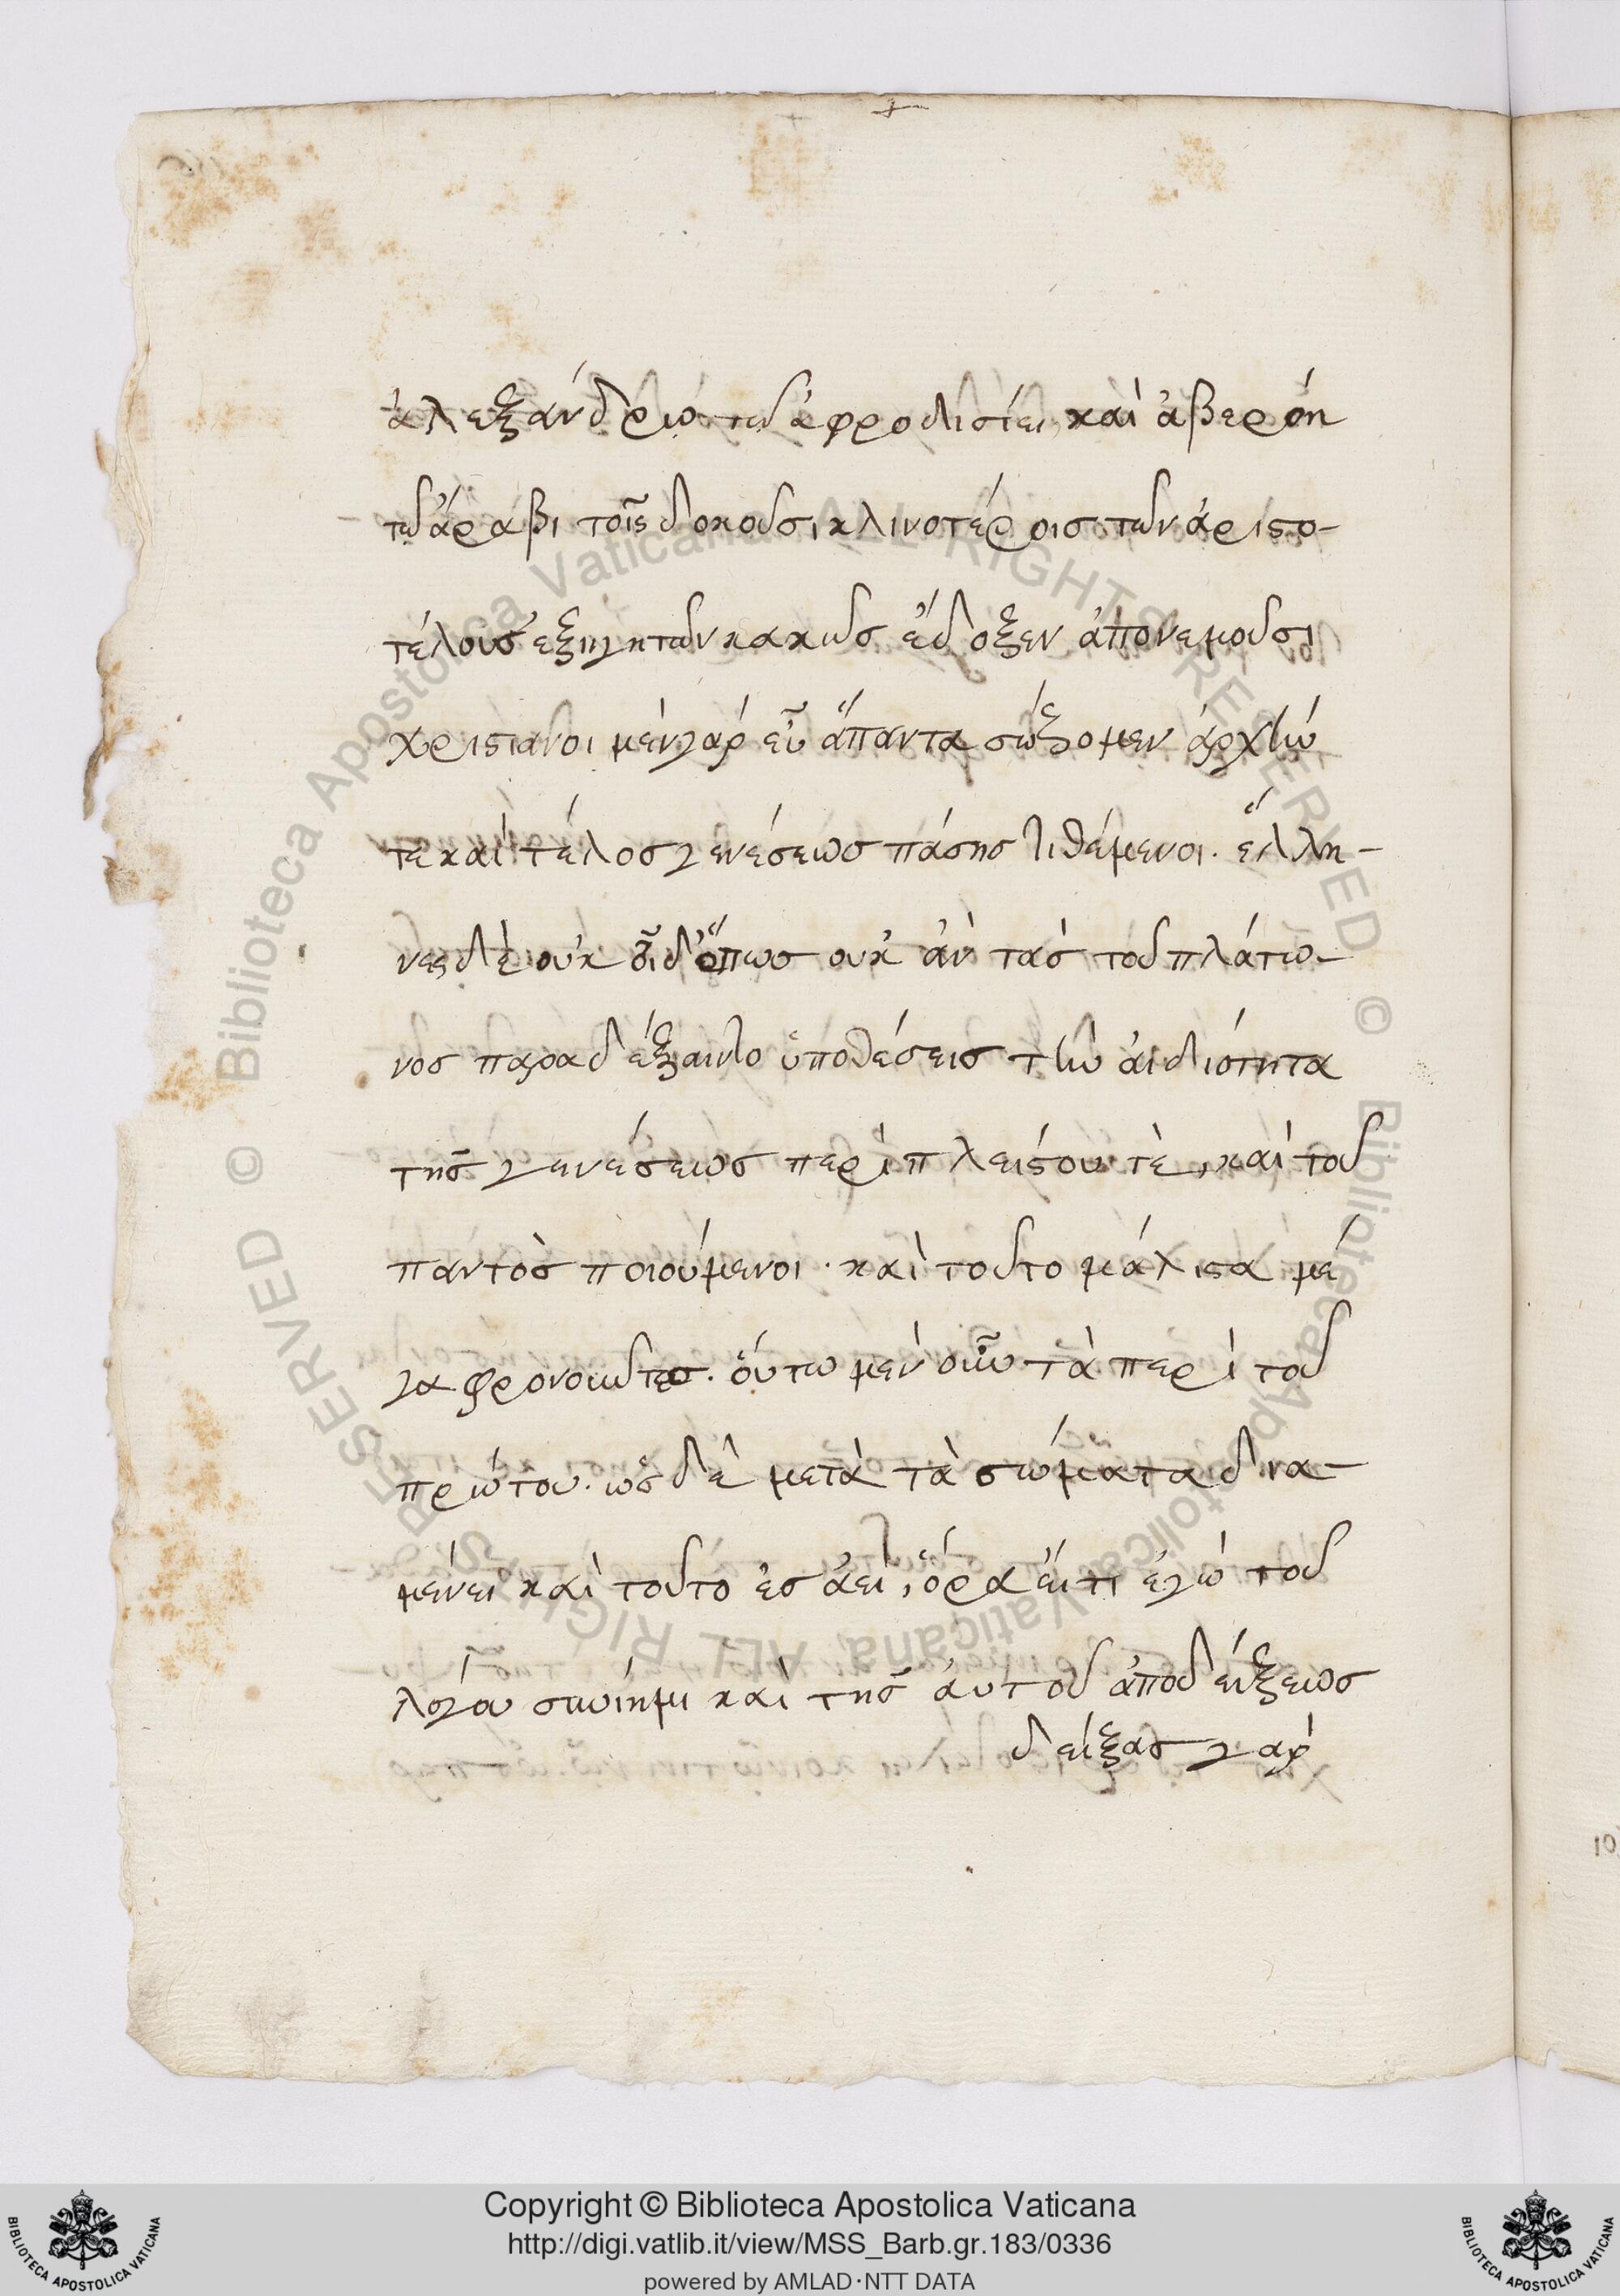 ἀλεξάνδρω τῶ ἀφροδισίει, καὶ ἀβερόη
τῶ ἄραβι τοῖς δοκοῦσι κλινοτέροισ τῶν ἀριστο-
τέλουσ ἐξηγητῶν κακῶσ ἔδοξεν ἀπονεμουσι
χριστιανοι μὲν γὰρ εὖ ἅπαντα σώζομεν ἀρχὴν
τε καὶ τέλοσ γενέσεωσ πάσησ τιθέμενοι. ἕλλη-
νες δὲ οὐκ οἶδ' ὅπωσ οὐκ ἀν τὰσ τοῦ πλάτω-
νοσ παραδέξαιντο ὑποθέσεισ τὴν ἀιδιότητα
τῆσ γενέσεωσ περὶ πλείστου τὲ, καὶ τοῦ
παντὸσ ποιούμενοι. καὶ τοῦτο μάλιστα μέ
γα φρονοῦντεσ. ὅυτω μὲν οὖν τὰ περὶ τοῦ
πρώτου. ὡσ δὲ μετὰ τὰ σώματα δια-
μένει καὶ τοῦτο ἐσ ἀεὶ, ὅρα ἔιτι ἐγὼ τοῦ
λόγου συνίημι καὶ τῆσ ἀυτοῦ ἀποδείξεωσ
δείξασ γὰρ
Copyright © Biblioteca Apostolica Vaticana
http://digi.vatlib.it/view/MSS_Barb.gr.183/0336
powered by AMLAD·NTT DATA
BIBLIOTECA APOSTOLICA VATICANA
BIBLIOTECA APOSTOLICA VATICANA
© Biblioteca Apostolica Vaticana ALL RIGHTS RESERVED © Biblioteca Apostolica Vaticana ALL RIGHTS RESERVED